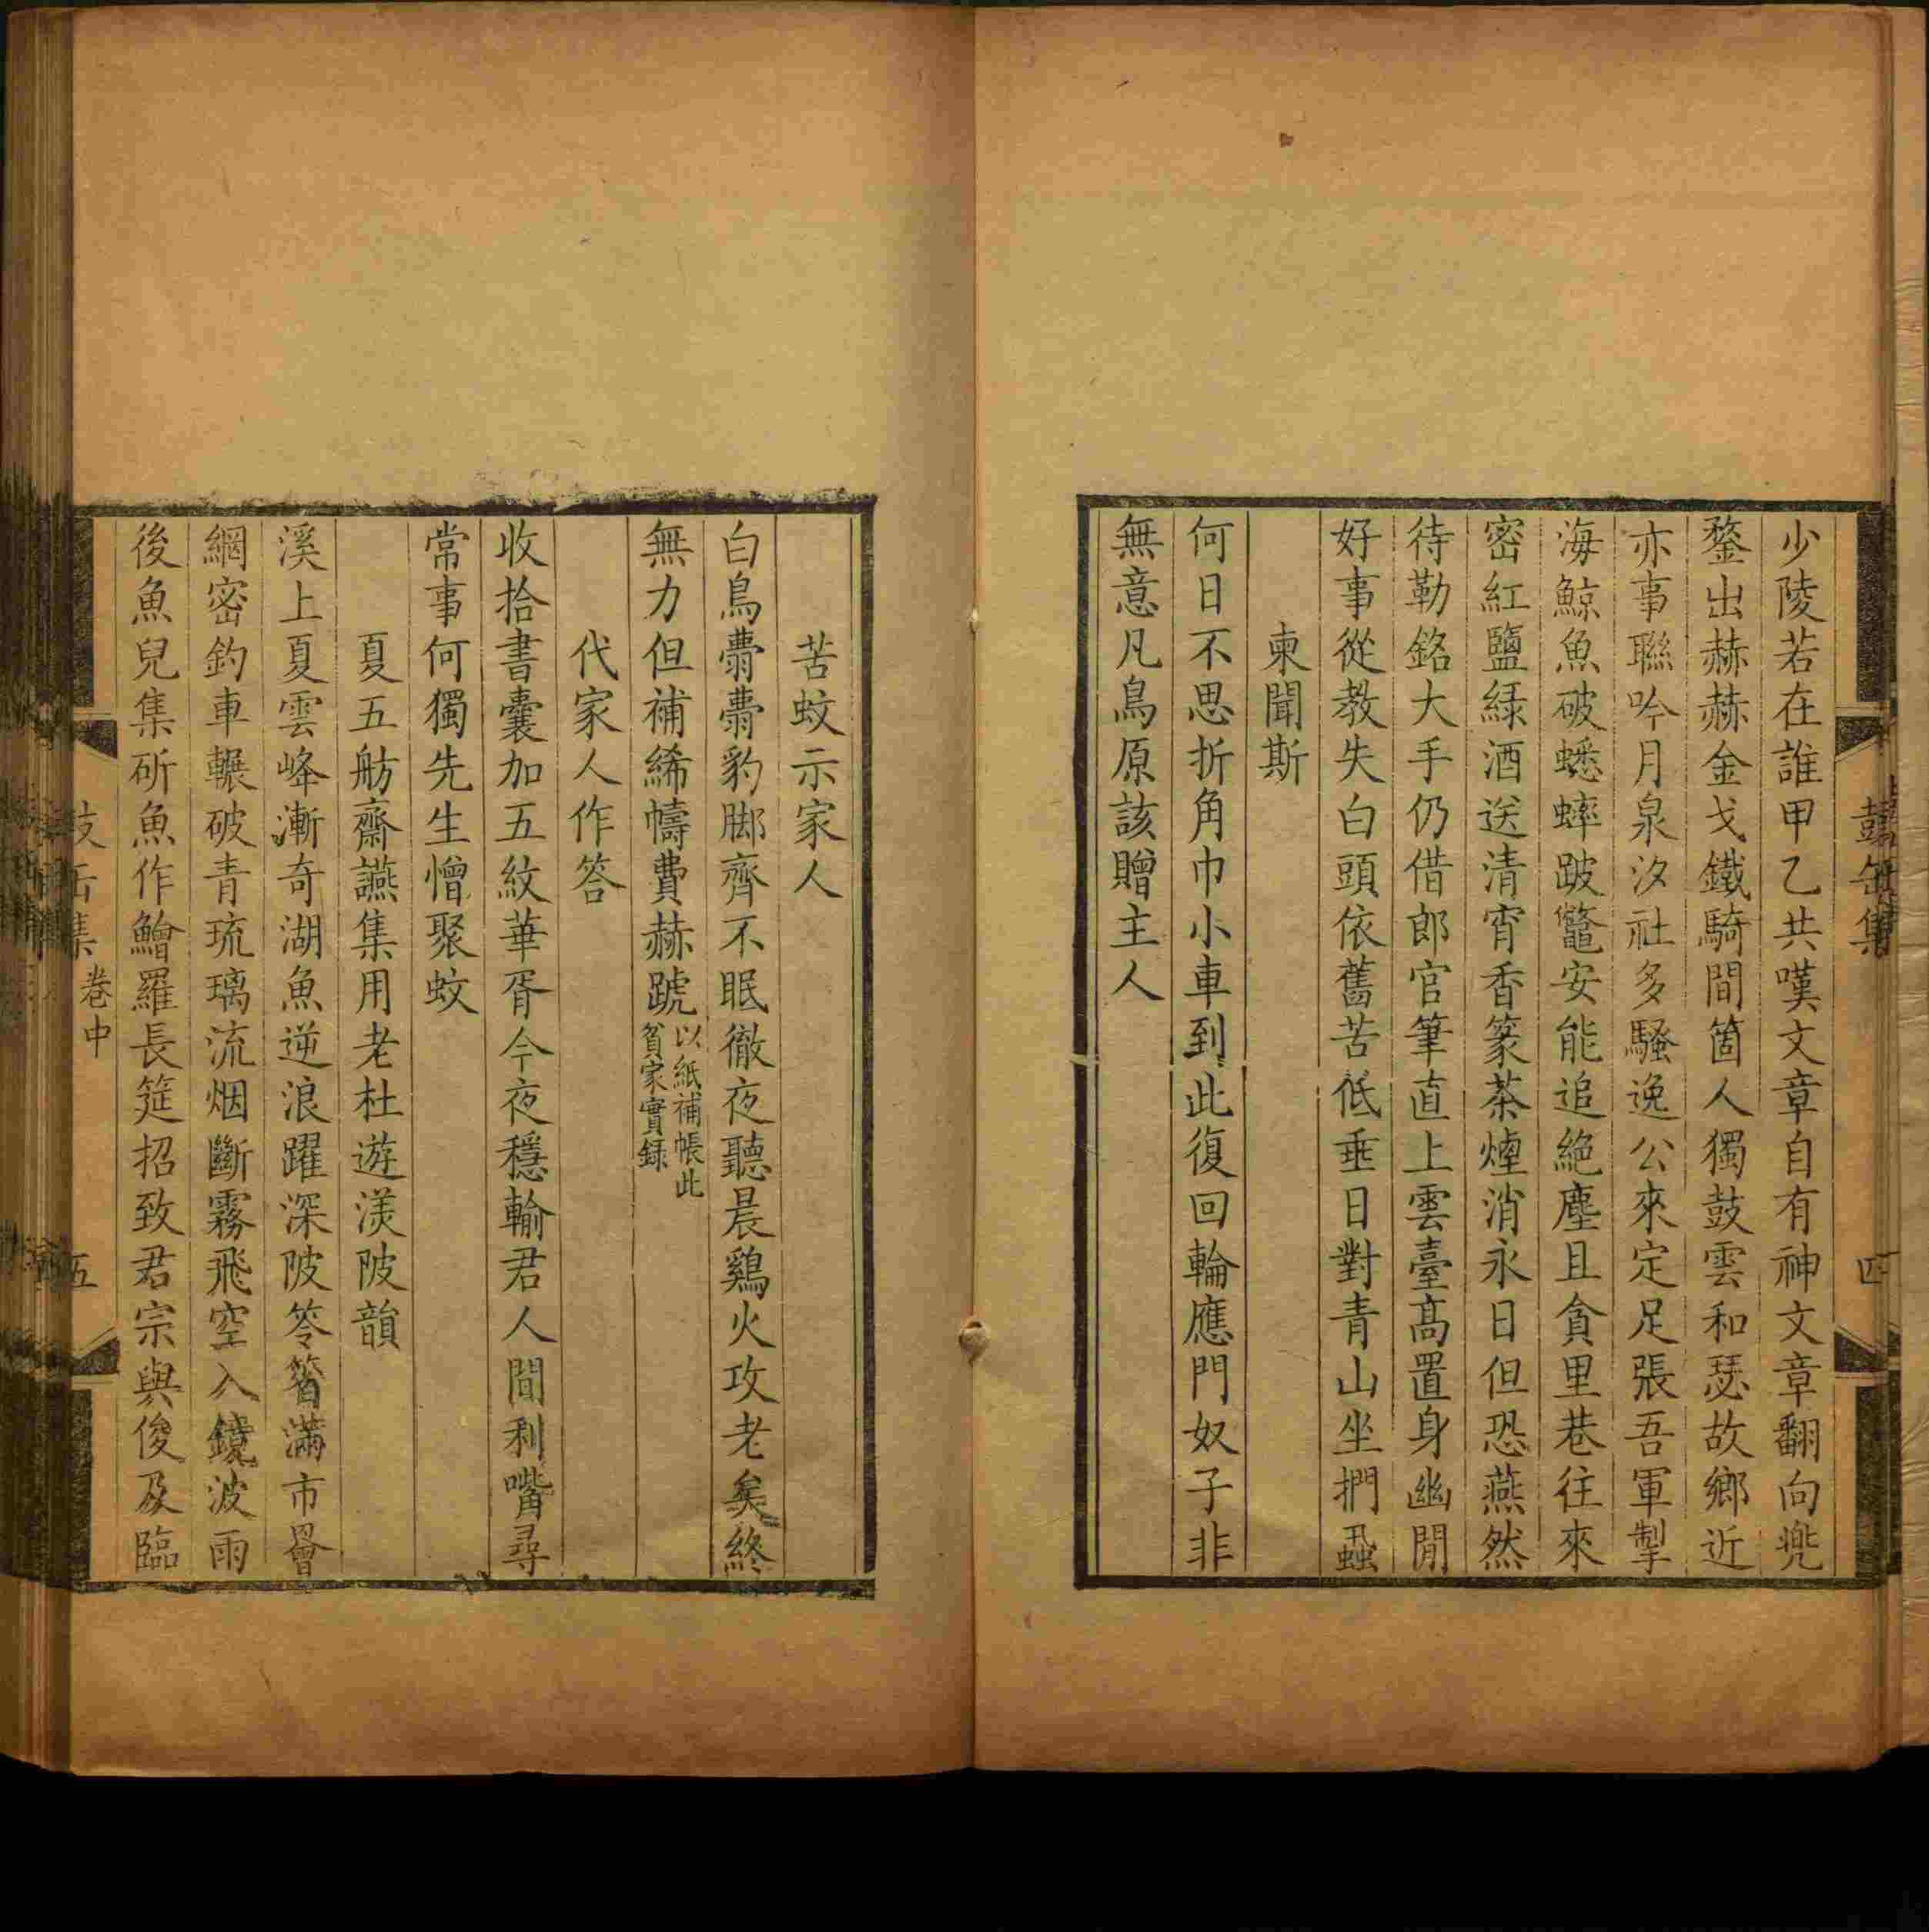 鼓缶集
四
少陵若在誰甲乙共嘆文章自有神文章翻向兜
鍪出赫赫金戈鐵騎間箇人獨鼓雲和瑟故鄉近
亦事聯吟月泉汐社多騷逸公來定足張吾軍掣
海鯨魚破蟋蟀跛鼈安能追絕塵且貪里巷往來
密紅鹽綠酒送清宵香篆茶煙消永日但恐燕然
待勒銘大手仍借郎官筆直上雲臺高置身幽閒
好事從教失白頭依舊苦低垂日對青山坐捫蝨
柬聞斯
何日不思折角巾小車到此復回輪應門奴子非
無意凡鳥原該贈主人
苦蚊示家人
白鳥薨薨豹脚齊不眠徹夜聽晨鷄火攻老矣終
無力但補絺幬費赫蹏以紙補帳此
貧家實録
代家人作答
收拾書囊加五紋華胥今夜穩輸君人間利嘴尋
常事何獨先生憎聚蚊
夏五舫齋讌集用老杜遊渼陂韻
溪上夏雲峰漸奇湖魚逆浪躍深陂笭箵滿市罾
網密釣車輾破青琉璃流烟斷霧飛空入鏡波雨
後魚兒集斫魚作鱠羅長筵招致君宗與俊及臨
卷中
五